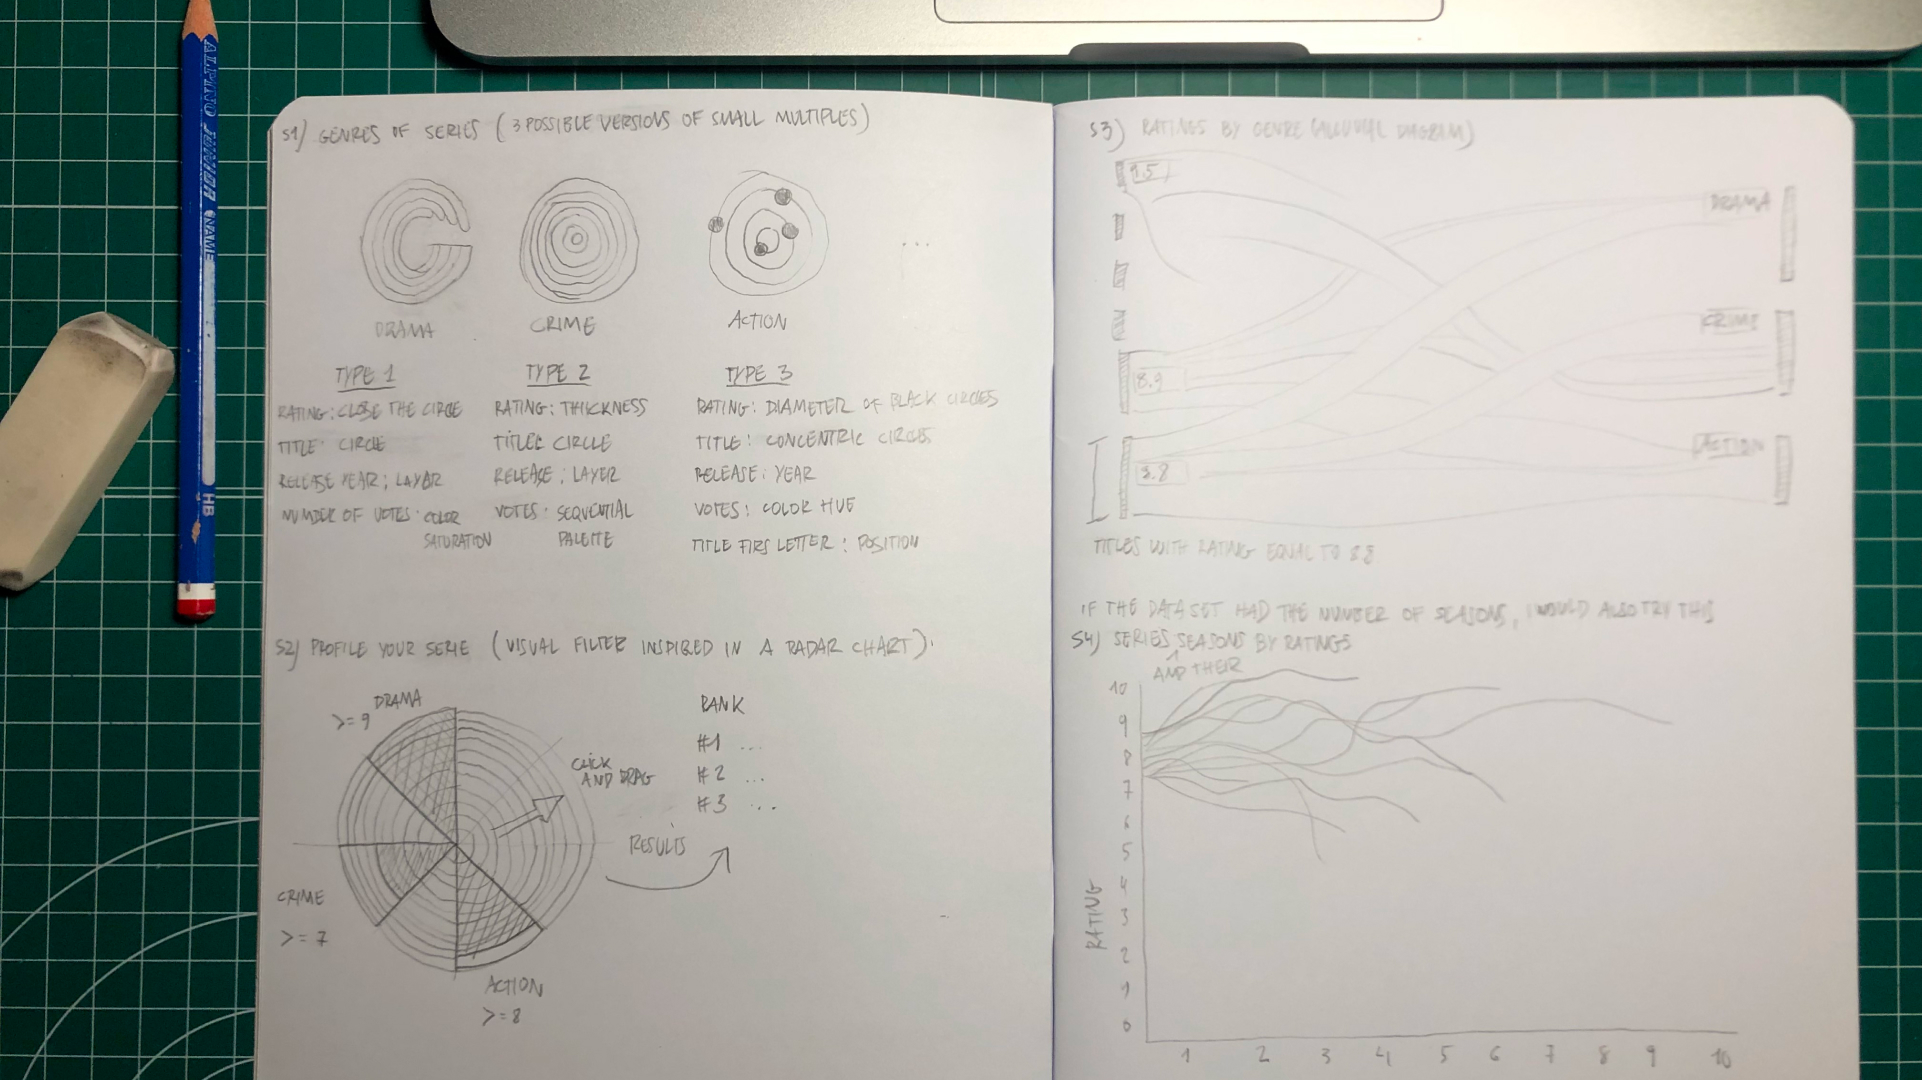 S1) GENRES OF SERIES (3 POSSIBLE VERSIONS OF SMALL MULTIPLES)
DRAMA
CRIME
ACTION
...
TYPE 1
RATING: CLOSE THE CIRCLE
TITLE: CIRCLE
RELEASE YEAR: LAYER
NUMBER OF VOTES: COLOR
SATURATION
TYPE 2
RATING: THICKNESS
TITLE: CIRCLE
RELEASE: LAYER
VOTES: SEQUENTIAL
PALETTE
TYPE 3
RATING: DIAMETER OF BLACK CIRCLES
TITLE: CONCENTRIC CIRCLES
RELEASE: YEAR
VOTES: COLOR HUE
TITLE FIRS LETTER: POSITION
S2) PROFILE YOUR SERIE (VISUAL FILTER INSPIRED IN A RADAR CHART).
DRAMA
>= 9
CLICK
AND DRAG
CRIME
>= 7
ACTION
>= 8
RESULTS
RANK
#1 ...
#2 ...
#3 ...
S3) RATINGS BY GENRE (ALLUVIAL DIAGRAM)
9.5
8.9
8.8
DRAMA
CRIME
ACTION
TITLES WITH RATING EQUAL TO 8.8
IF THE DATASET HAD THE NUMBER OF SEASONS, I WOULD ALSO TRY THIS
S4) SERIES SEASONS BY RATINGS
AND THEIR
RATING
10
9
8
7
6
5
4
3
2
1
0
1 2 3 4 5 6 7 8 9 10
ALPINO JUNIOR
NAME
HB